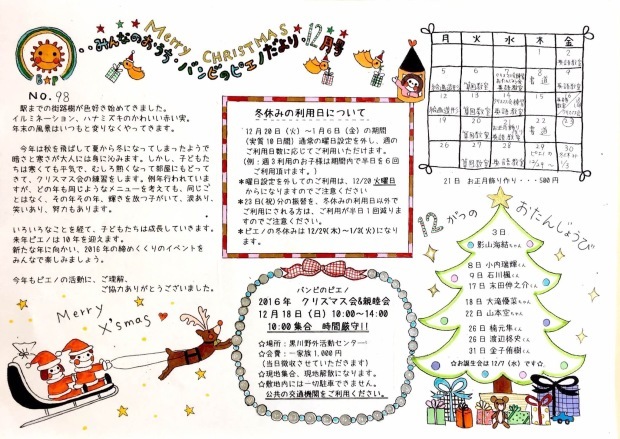 みんなのおうち・バンビのピエノだより・12月号
Merry CHRISTMAS
NO.98
駅までの街路樹が色好き始めてきました。
イルミネーション、ハナミズキのかわいい赤い実。
年末の風景はいつもと変りなくやってきます。
今年は秋を飛ばして夏から冬になってしまったようで
暗さと寒さが大人には身に沁みます。しかし、子どもた
ちは寒くても半気で、むしろ熱くって部屋にもどって
きて、クリスマス会の練習をします。例年行われていま
すが、どの年も同じようなメニューを考えても、同じこ
とはなく、その年その年、輝きを放つ子がいて、涙あり、
笑いあり、努力もあります。
いろいろなことを経て、子どもたちは成長していきます。
来年ピエノは10年を迎えます。
新たな年に向かい、2016年の締めくくりのイベントを
みんなで楽しみましょう。
今年もピエノの活動に、ご理解、
ご協力ありがとうございました。
Merry X'smas
冬休みの利用日について
12月20日(火)～1月6日(金)の期間
(実質10日間)通常の曜日設定を外し、週の
ご利用日数に応じてご利用いただけます。
(例:週3利用のお子様は期間内で半日を6回
ご利用頂けます。)
*曜日設定を外してのご利用は、12/20火曜日
からになりますのでご注意ください
*23日(祝)分の振替を、冬休みの利用日以外で
ご利用にされる方は、ご利用が半日1回減りま
すのでご注意ください。
*ピエノの冬休みは12/29(木)～1/3(火)にな
ります。
バンビのピエノ
2016年 クリスマス会&親睦会
12月18日(日)10:00～14:00
10:00集合 時間厳守!!
☆場所:黒川野外活動センター
☆会費:一家族1,000円
(当日徴収させていただきます)
☆現地集合、現地解散になります。
☆敷地内には一切駐車できません。
公共の交通機関をご利用ください。
月 火 水 木 金
1 2
5 6 7 8 9
書道
12 13 14 15 16
19 20 21 22 23
書道
26 27 28 29 30
21日 お正月飾り作り・・・500円
12がつのおたんじょうび
3日
影山海結ちゃん
8日 小内瑞輝くん
9日 石川楓くん
17日 末田伸之介くん
18日 大滝優菜ちゃん
22日 山本空ちゃん
26日 楠元隼くん
26日 渡辺柊矢くん
31日 金子侑樹くん
☆お誕生会は12/7(水)です☆